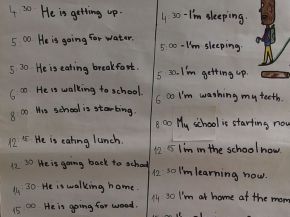 4 30 He is getting up.
5 00 He is going for water.
5 30 He is eating breakfast.
6 00 He is walking to school.
8 00 His school is starting.
12 15 He is eating lunch.
12 30 He is going back to school
14 30 He is walking home.
15 00 He is going for wood.
4 30 - I'm sleeping.
5 00 - I'm sleeping.
5 30 - I'm getting up.
6 00 I'm washing my teeth.
8 00 My school is starting now
12 15 I'm in the school now.
12 30 I'm learning now.
14 30 I'm at home at the mom